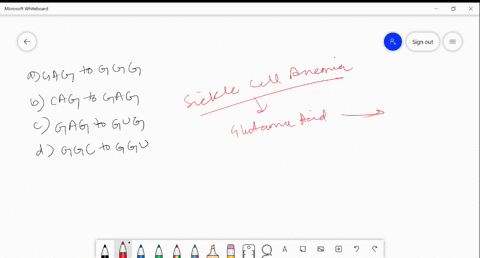 Microsoft Whiteboard
Sign out
a) GAG to GGG
b) CAG to GAG
c) GAG to GUG
d) GGC to GGU
Sickle Cell Anemia
Glutamic Acid
A